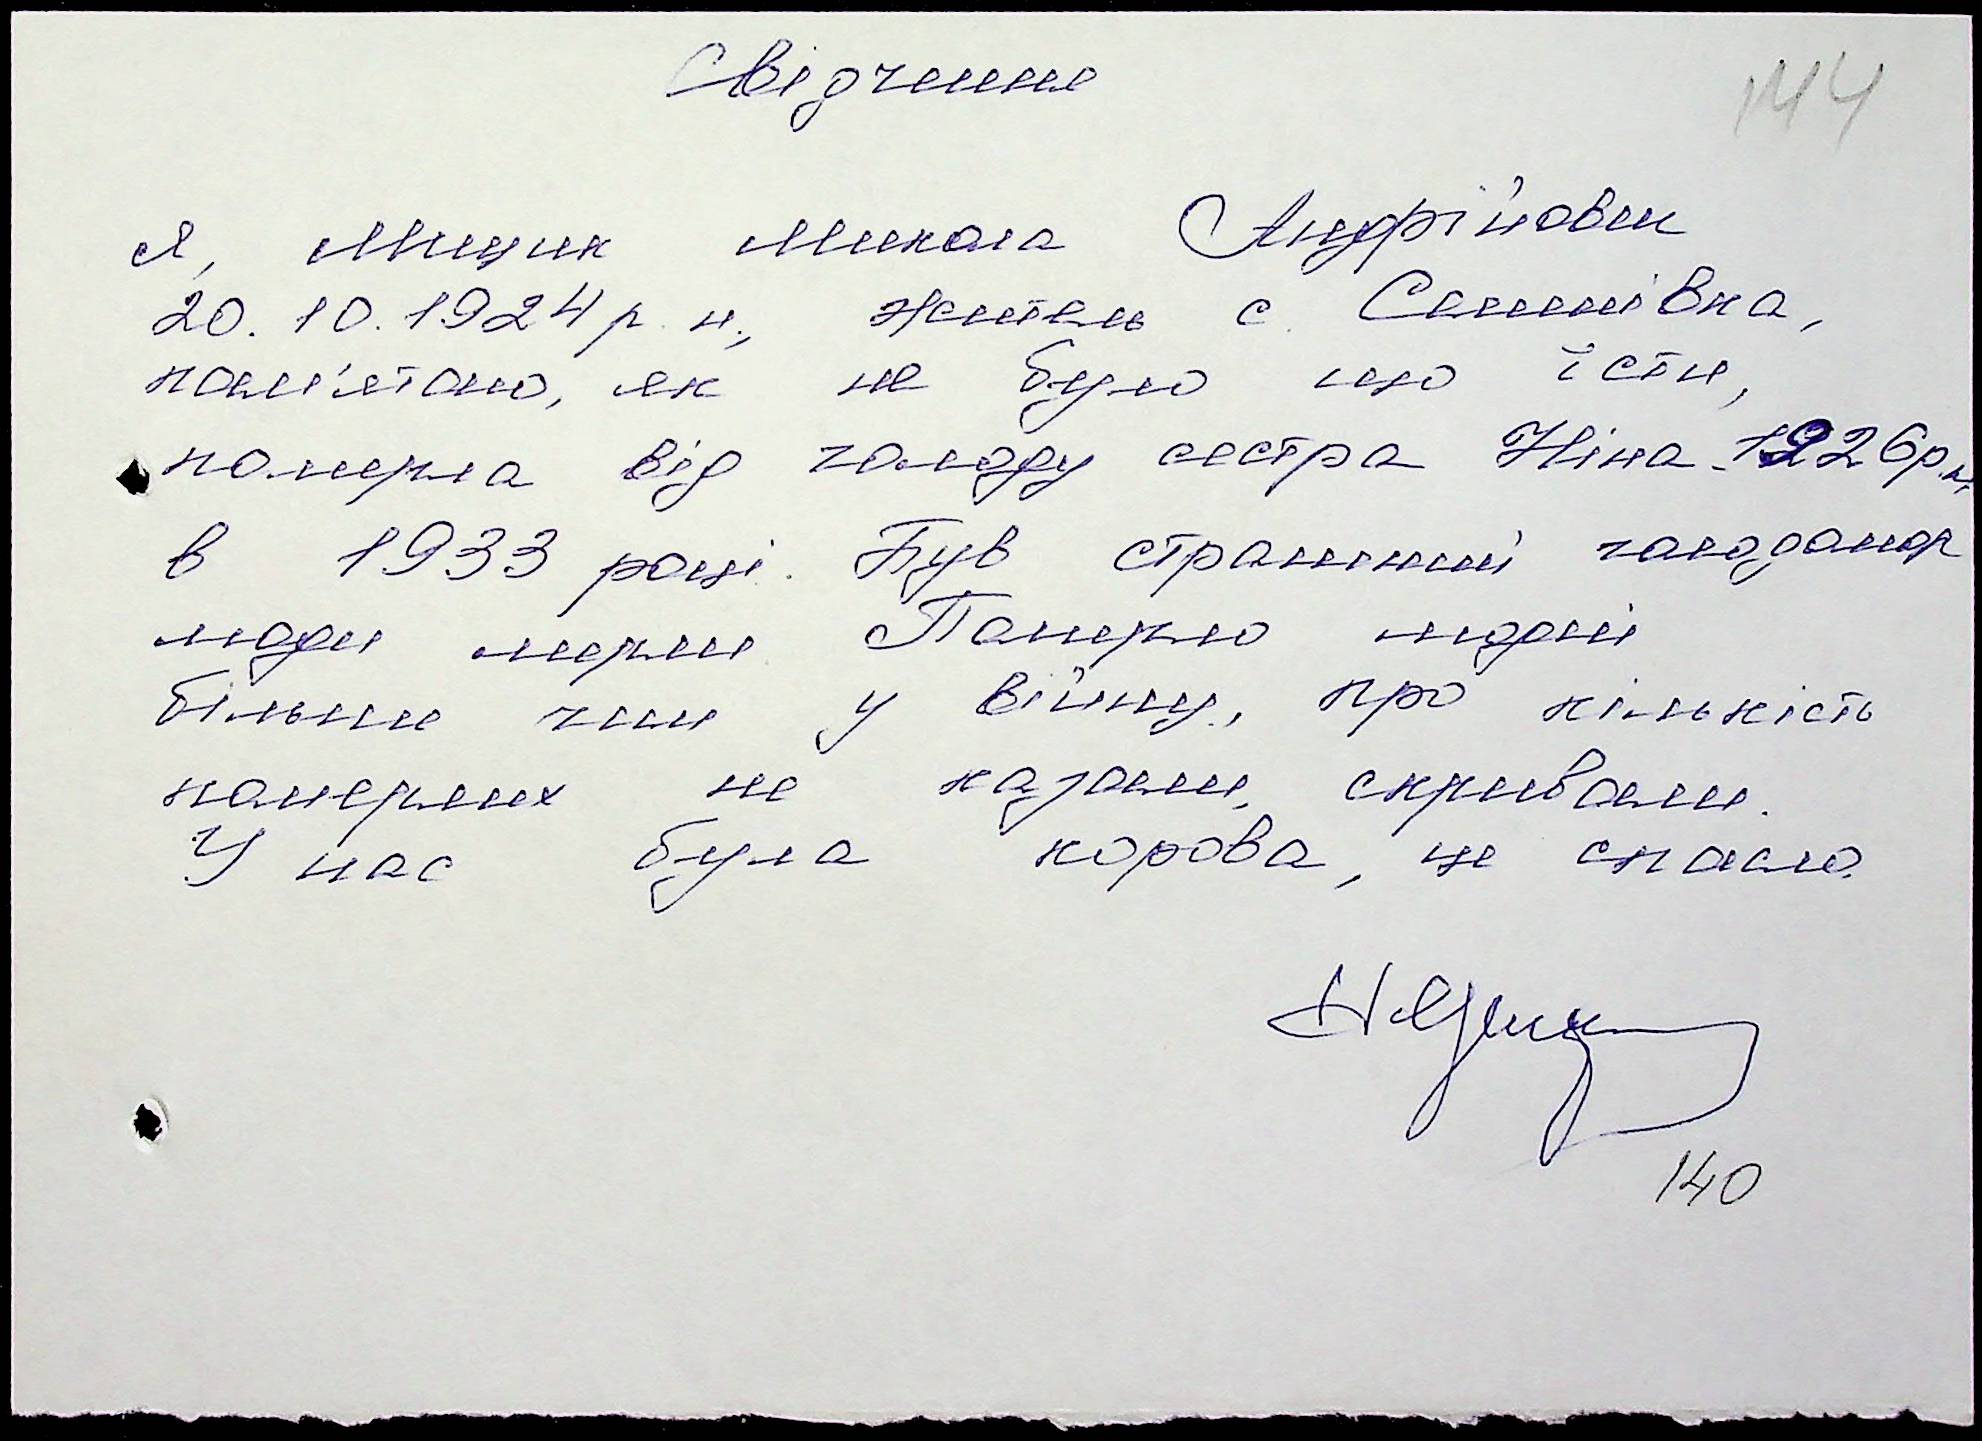 Свідчення
144
Я, Мицик Микола Андрійович
20.10.1924 р.н., житель с. Семенівка,
пам'ятаю, як не було що їсти,
померла від голоду сестра Ніна - 1926 р.н,
в 1933 році. Був страшний голодомор
люди мерли Померло людей
більше чим у війну, про кількість
померлих не казали, скривали.
У нас була корова, це спасло.
140